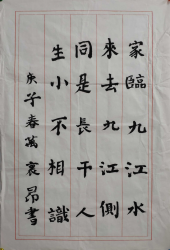 家臨九江水
來去九江側
同是長干人
生小不相識
庚子春萬昂書